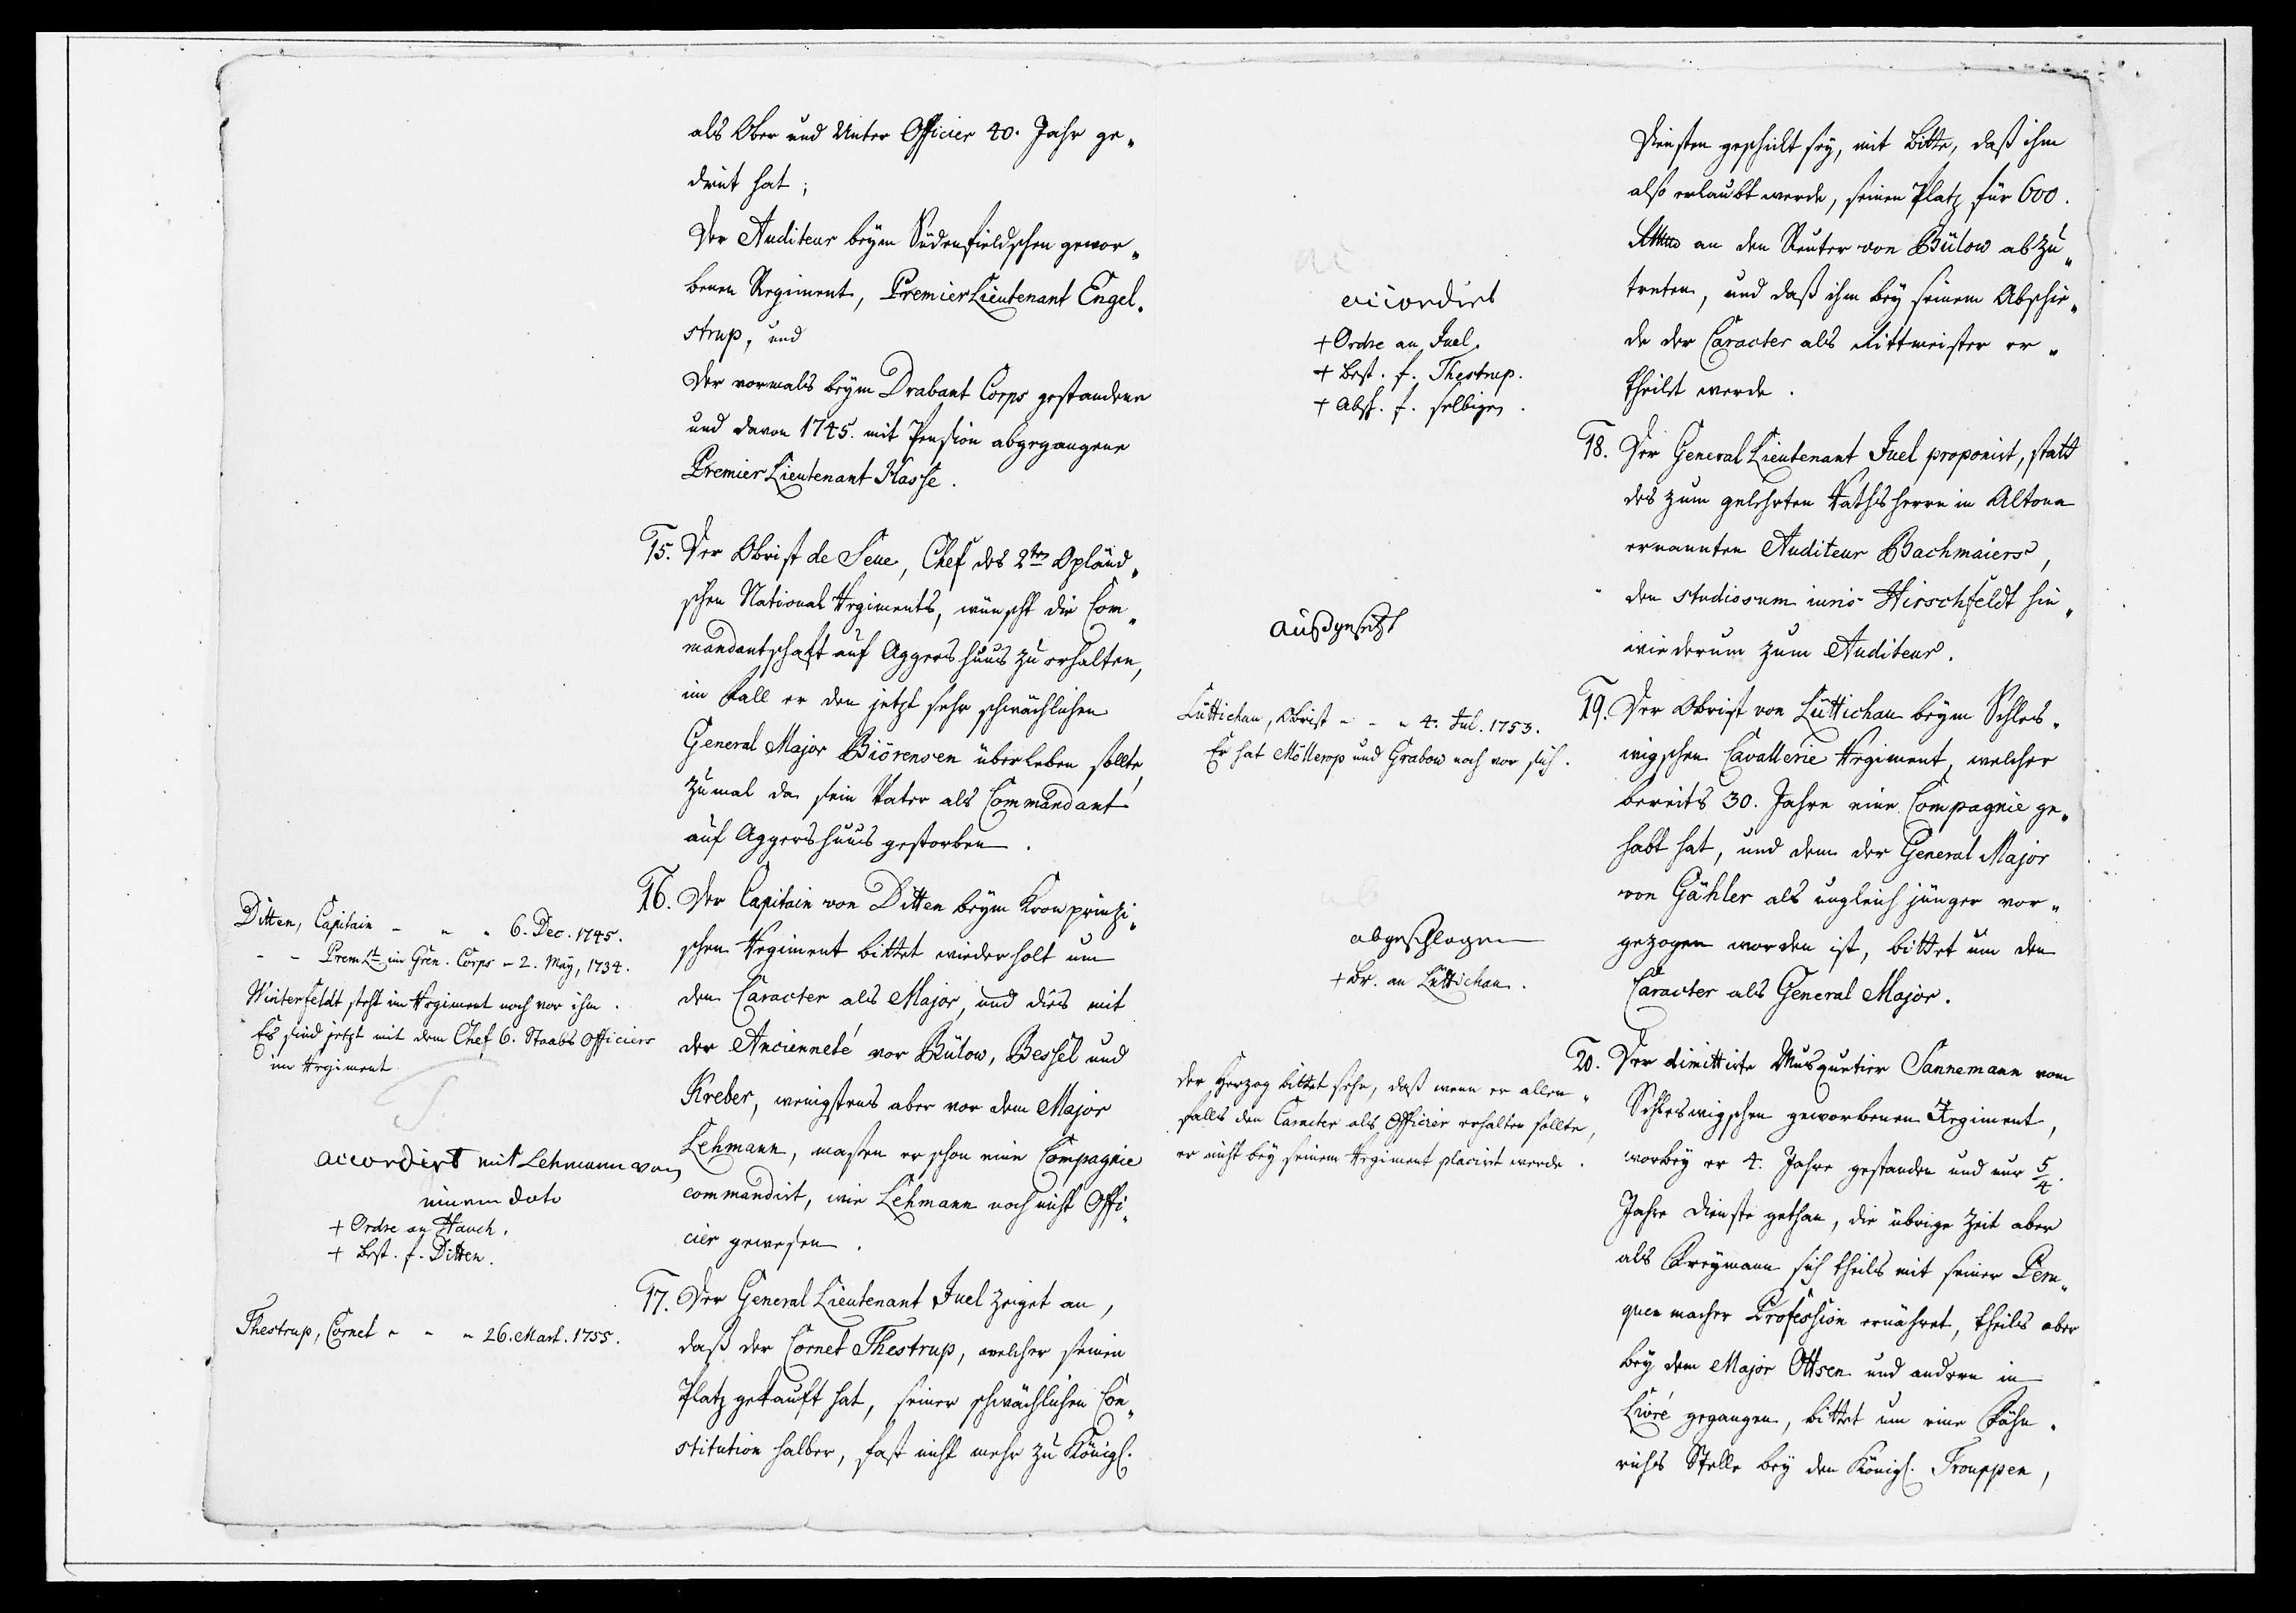 als Ober und Unter Officier 40. Jahr ge„
dient hat;
Der Auditeur beym Südenfieldschen gewor„
benen Regiment, Premier Lieutenant Engel„
strup, und
Der vormals beym Drabant Corps gestandene
und davon 1745. mit Pension abgegangene
Premier Lieutenant Hasse.
15. Der Obrist de Seue, Chef des 2ten Opländ„
schen National Regiments, wünscht die Com„
mandantschaft auf Aggershuus zu erhalten,
im Fall er den jetzt sehr schwächlichen
General Major Biörensen überleben sollte,
zumal da sein Vater als Commandant
auf Aggershuus gestorben.
Ditten, Capitain - „ „ 6. Dec. 1745.
- - Prem. Lt. im Gren. Corps - 2. May, 1734.
Winterfeldt steht im Regiment noch vor ihm.
Es sind jetzt mit dem Chef 6. Staabs Officiers
im Regiment
accordirt mit Lehmann von
einem dato
+ Ordre an Hauch.
+ Best. f. Ditten.
16. Der Capitain von Ditten beym Kronprinzi„
schen Regiment bittet wiederholt um
den Caracter als Major, und dies mit
der Ancienneté vor Bülow, Bessel und
Kreber, wenigstens aber vor dem Major
Lehmann, massen er schon eine Compagnie
commandirt, wie Lehmann noch nicht Offi„
cier gewesen.
Thestrup, Cornet „ - „ 26. Mart. 1755.
17. Der General Lieutenant Juel zeiget an,
daß der Cornet Thestrup, welcher seinen
Platz gekauft hat, seiner schwächlichen Con„
stitution halber, fast nicht mehr zu Königl.
Diensten geschickt sey, mit Bitte, daß ihm
also erlaubt werde, seinen Platz für 600.
an den Reuter von Bülow abzu„
treten, und daß ihm bey seinem Abschie„
de der Caracter als Rittmeister er„
theilet werde.
accordirt
+ Ordre an Juel.
+ Best. f. Thestrup.
+ Absch. f. selbigen.
18. Der General Lieutenant Juel proponirt, statt
des zum gelehrten Rathsherrn in Altona
ernannten Auditeur Bachmaiers,
den studiosum iuris Hirschfeldt hin„
wiederum zum Auditeur.
ausgesetzt
Lüttichau, Obrist - - „ 4. Jul. 1753.
Er hat Möllerup und Grabow noch vor sich.
19. Der Obrist von Lüttichau beym Schles„
wigschen Cavallerie Regiment, welcher
bereits 30. Jahre eine Compagnie ge„
habt hat, und dem der General Major
von Gähler als ungleich jünger vor„
gezogen worden ist, bittet um den
Caracter als General Major.
abgeschlagen
+ Br. an Lüttichau.
der Herzog bittet sehr, daß wenn er allen„
falls den Caracter als Officier erhalten sollte,
er nicht bey seinem Regiment placirt werde.
20. Der dimittirte Musquetier Sannemann vom
Schleswigschen geworbenen Regiment,
worbey er 4. Jahre gestanden und nur 5/4.
Jahre Dienste gethan, die übrige Zeit aber
als Freymann sich theils mit seiner Peru„
quenmacher Profession ernähret, theils aber
bey dem Major Ottsen und andern in
Livré gegangen, bittet um eine Fähn„
richs Stelle bey den Königl. Trouppen,